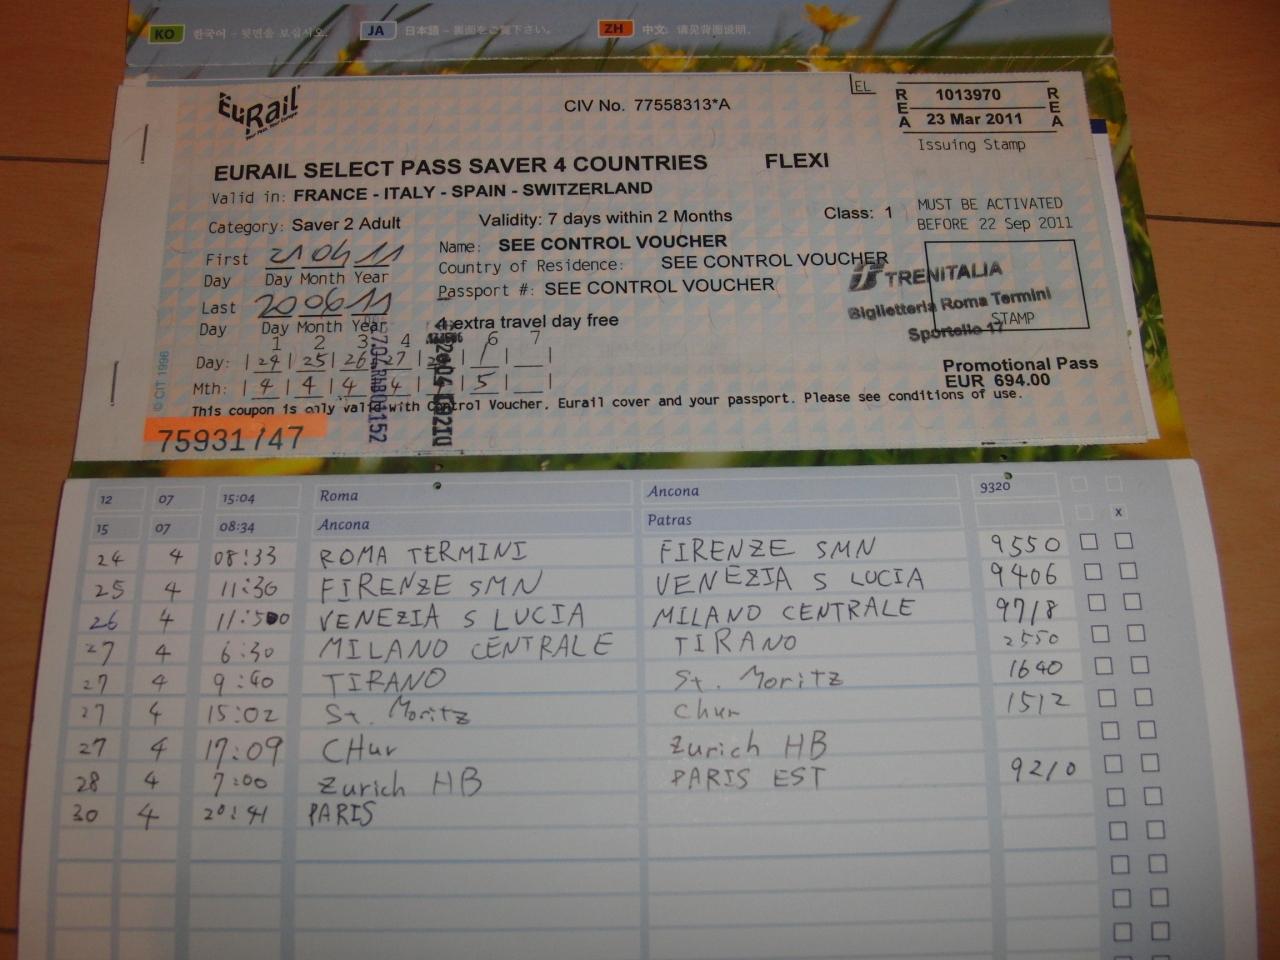 KO 한국어 - 뒷면을 보십시오. JA 日本語 - 裏面をご覧下さい。 ZH 中文: 请见背面说明.
EURail
EL
CIV No. 77558313*A
REA 1013970 REA
23 Mar 2011
Issuing Stamp
EURAIL SELECT PASS SAVER 4 COUNTRIES FLEXI
Valid in: FRANCE - ITALY - SPAIN - SWITZERLAND
Category: Saver 2 Adult Validity: 7 days within 2 Months Class: 1
MUST BE ACTIVATED
BEFORE 22 Sep 2011
First 21 04 11
Day Day Month Year
Name: SEE CONTROL VOUCHER
Country of Residence: SEE CONTROL VOUCHER
Passport #: SEE CONTROL VOUCHER
Last 20 06 11
Day Day Month Year
TRENITALIA
Biglietteria Roma Termini
STAMP
Sportello 17
4 extra travel day free
1 2 3 4 6 7
Day: 24 25 26 27
Mth: 4 4 4 4 5
Promotional Pass
EUR 694.00
This coupon is only valid with Control Voucher, Eurail cover and your passport. Please see conditions of use.
© CIT 1996
75931747
12 07 15:04 Roma Ancona 9320
15 07 08:34 Ancona Patras x
24 4 08:33 ROMA TERMINI FIRENZE SMN 9550
25 4 11:30 FIRENZE SMN VENEZIA S LUCIA 9406
26 4 11:50 VENEZIA S LUCIA MILANO CENTRALE 9718
27 4 6:30 MILANO CENTRALE TIRANO 2550
27 4 9:40 TIRANO St. Moritz 1640
27 4 15:02 St. Moritz Chur 1512
27 4 17:09 CHur Zurich HB
28 4 7:00 Zurich HB PARIS EST 9210
30 4 20:41 PARIS